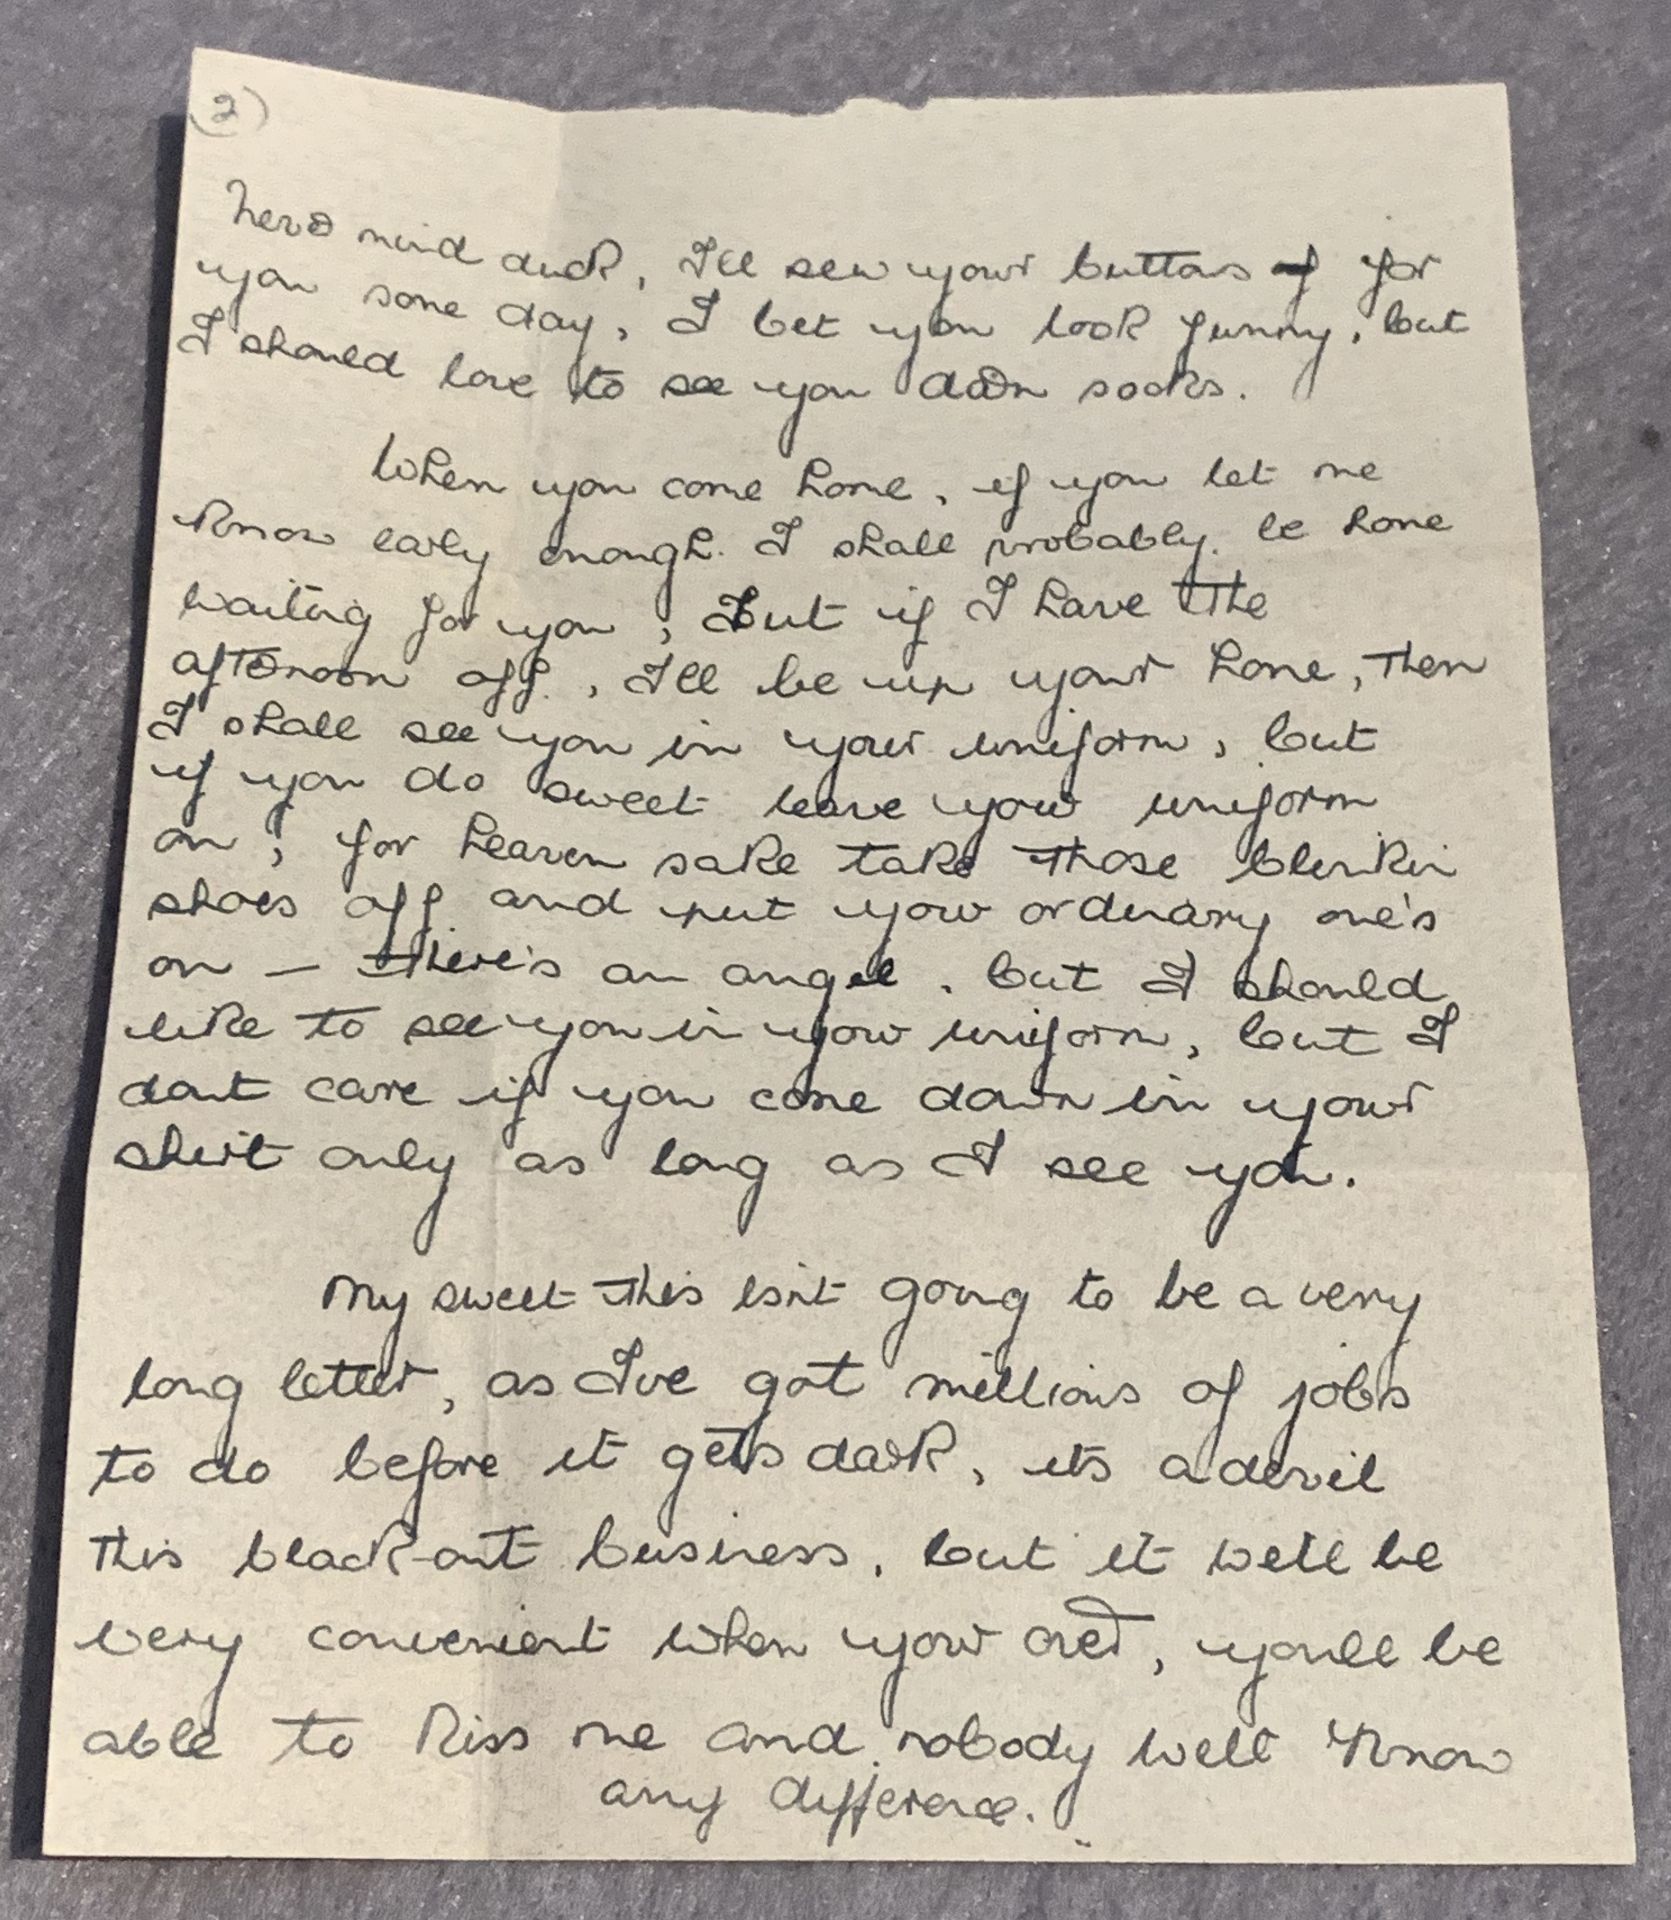 (2)
never mind duck, I'll sew your buttons for
you some day, I bet you look funny, but
I should love to see you darn socks.
When you come home, if you let me
know early enough. I shall probably. be home
waiting for you, but if I have the
afternoon off., I'll be up your home, then
I shall see you in your uniform, but
if you do sweet leave your uniform
on, for heaven sake take those blinkin
shoes off and put your ordinary one's
on — there's an angel, but I should
like to see you in your uniform, but I
dont care if you come down in your
shirt only as long as I see you.
My sweet this isn't going to be a very
long letter, as I've got millions of jobs
to do before it gets dark, its a devil
this black-out business, but it will be
very convenient when your , youll be
able to kiss me and nobody will know
any difference.